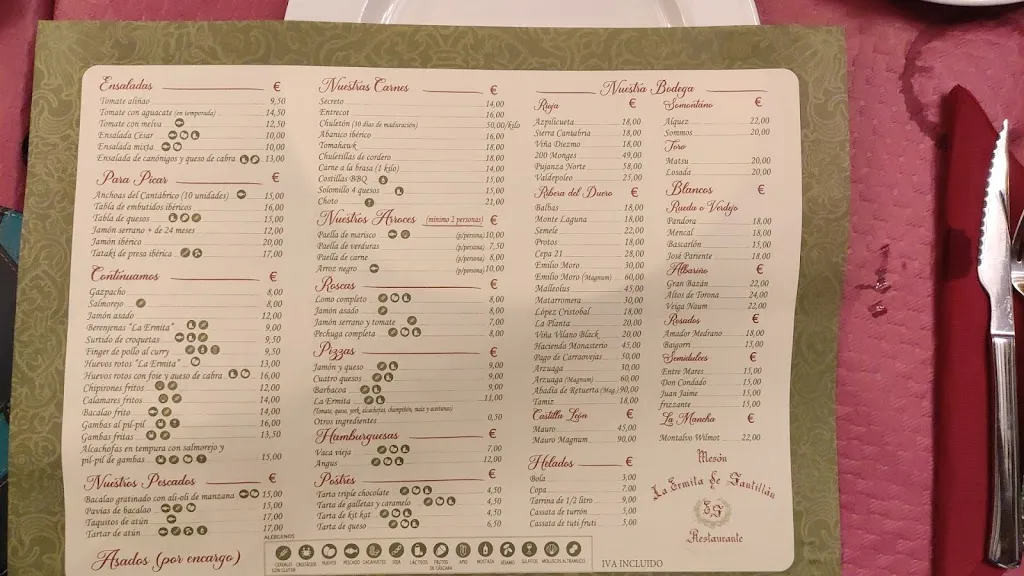 Ensaladas €
Tomate aliñao 9,50
Tomate con aguacate (en temporada) 14,50
Tomate con melva 12,50
Ensalada César 10,00
Ensalada mixta 10,00
Ensalada de canónigos y queso de cabra 13,00
Para Picar €
Anchoas del Cantábrico (10 unidades) 15,00
Tabla de embutidos ibéricos 16,00
Tabla de quesos 15,00
Jamón serrano + de 24 meses 12,00
Jamón ibérico 20,00
Tataki de presa ibérica 17,00
Continuamos €
Gazpacho 8,00
Salmorejo 8,00
Jamón asado 12,00
Berenjenas "La Ermita" 9,00
Surtido de croquetas 9,50
Finger de pollo al curry 9,50
Huevos rotos "La Ermita" 13,00
Huevos rotos con foie y queso de cabra 16,00
Chipirones fritos 12,00
Calamares fritos 14,00
Bacalao frito 14,00
Gambas al pil-pil 16,00
Gambas fritas 13,50
Alcachofas en tempura con salmorejo y
pil-pil de gambas 15,00
Nuestros Pescados €
Bacalao gratinado con ali-oli de manzana 15,00
Pavías de bacalao 15,00
Taquitos de atún 17,00
Tartar de atún 17,00
Asados (por encargo)
Nuestras Carnes €
Secreto 14,00
Entrecot 16,00
Chuletón (30 días de maduración) 50,00/kilo
Abanico ibérico 16,00
Tomahawk 18,00
Chuletillas de cordero 18,00
Carne a la brasa (1 kilo) 14,00
Costillas BBQ 15,00
Solomillo 4 quesos 15,00
Choto 21,00
Nuestros Arroces (mínimo 2 personas) €
Paella de marisco (p/persona) 10,00
Paella de verduras (p/persona) 7,50
Paella de carne (p/persona) 8,00
Arroz negro (p/persona) 10,00
Roscas €
Lomo completo 8,00
Jamón asado 8,00
Jamón serrano y tomate 7,00
Pechuga completa 8,00
Pizzas €
Jamón y queso 9,00
Cuatro quesos 9,00
Barbacoa 9,00
La Ermita 11,00
(Tomate, queso, york, alcachofas, champiñón, maíz y aceitunas)
Otros ingredientes 0,50
Hamburguesas €
Vaca vieja 7,00
Angus 12,00
Postres €
Tarta triple chocolate 4,50
Tarta de galletas y caramelo 4,50
Tarta de kit kat 4,50
Tarta de queso 6,50
Nuestra Bodega
Rioja €
Azpilicueta 18,00
Sierra Cantabria 18,00
Viña Diezmo 18,00
200 Monges 49,00
Pujanza Norte 58,00
Valdepoleo 25,00
Ribera del Duero €
Balbas 18,00
Monte Laguna 18,00
Semele 22,00
Protos 18,00
Cepa 21 28,00
Emilio Moro 30,00
Emilio Moro (Magnum) 60,00
Malleolus 45,00
Matarromera 30,00
López Cristobal 18,00
La Planta 20,00
Viña Vilano Black 20,00
Hacienda Monasterio 45,00
Pago de Carraovejas 50,00
Arzuaga 30,00
Arzuaga (Magnum) 60,00
Abadía de Retuerta (Mag.) 90,00
Tamiz 18,00
Castilla León €
Mauro 45,00
Mauro Magnum 90,00
Helados €
Bola 3,00
Copa 7,00
Tarrina de 1/2 litro 9,00
Cassata de turrón 5,00
Cassata de tuti fruti 5,00
Somontano €
Alquez 22,00
Sommos 20,00
Toro
Matsu 20,00
Losada 20,00
Blancos €
Rueda o Verdejo
Pandora 18,00
Mencal 18,00
Bascarlón 15,00
José Pariente 18,00
Albariño €
Gran Bazán 22,00
Altos de Torona 24,00
Veiga Naum 22,00
Rosados €
Amador Medrano 18,00
Baigorri 15,00
Semidulces €
Entre Mares 15,00
Don Condado 15,00
Juan Jaime 15,00
frizzante 15,00
La Mancha €
Montalvo Wilmot 22,00
Mesón
La Ermita de Santillán
Restaurante
ALÉRGENOS
CEREALES CON GLUTEN CRUSTÁCEOS HUEVOS PESCADO CACAHUETES SOJA LÁCTEOS FRUTOS DE CÁSCARA APIO MOSTAZA SÉSAMO SULFITOS MOLUSCOS ALTRAMUCES
IVA INCLUIDO